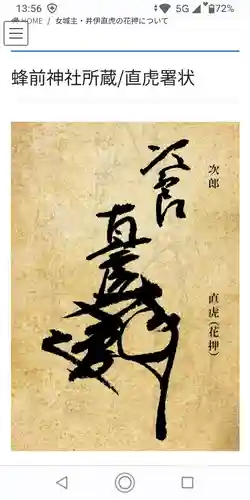 13:56
5G
72%
HOME / 女城主・井伊直虎の花押について
蜂前神社所蔵/直虎署状
次郎
次郎
直虎
直虎(花押)